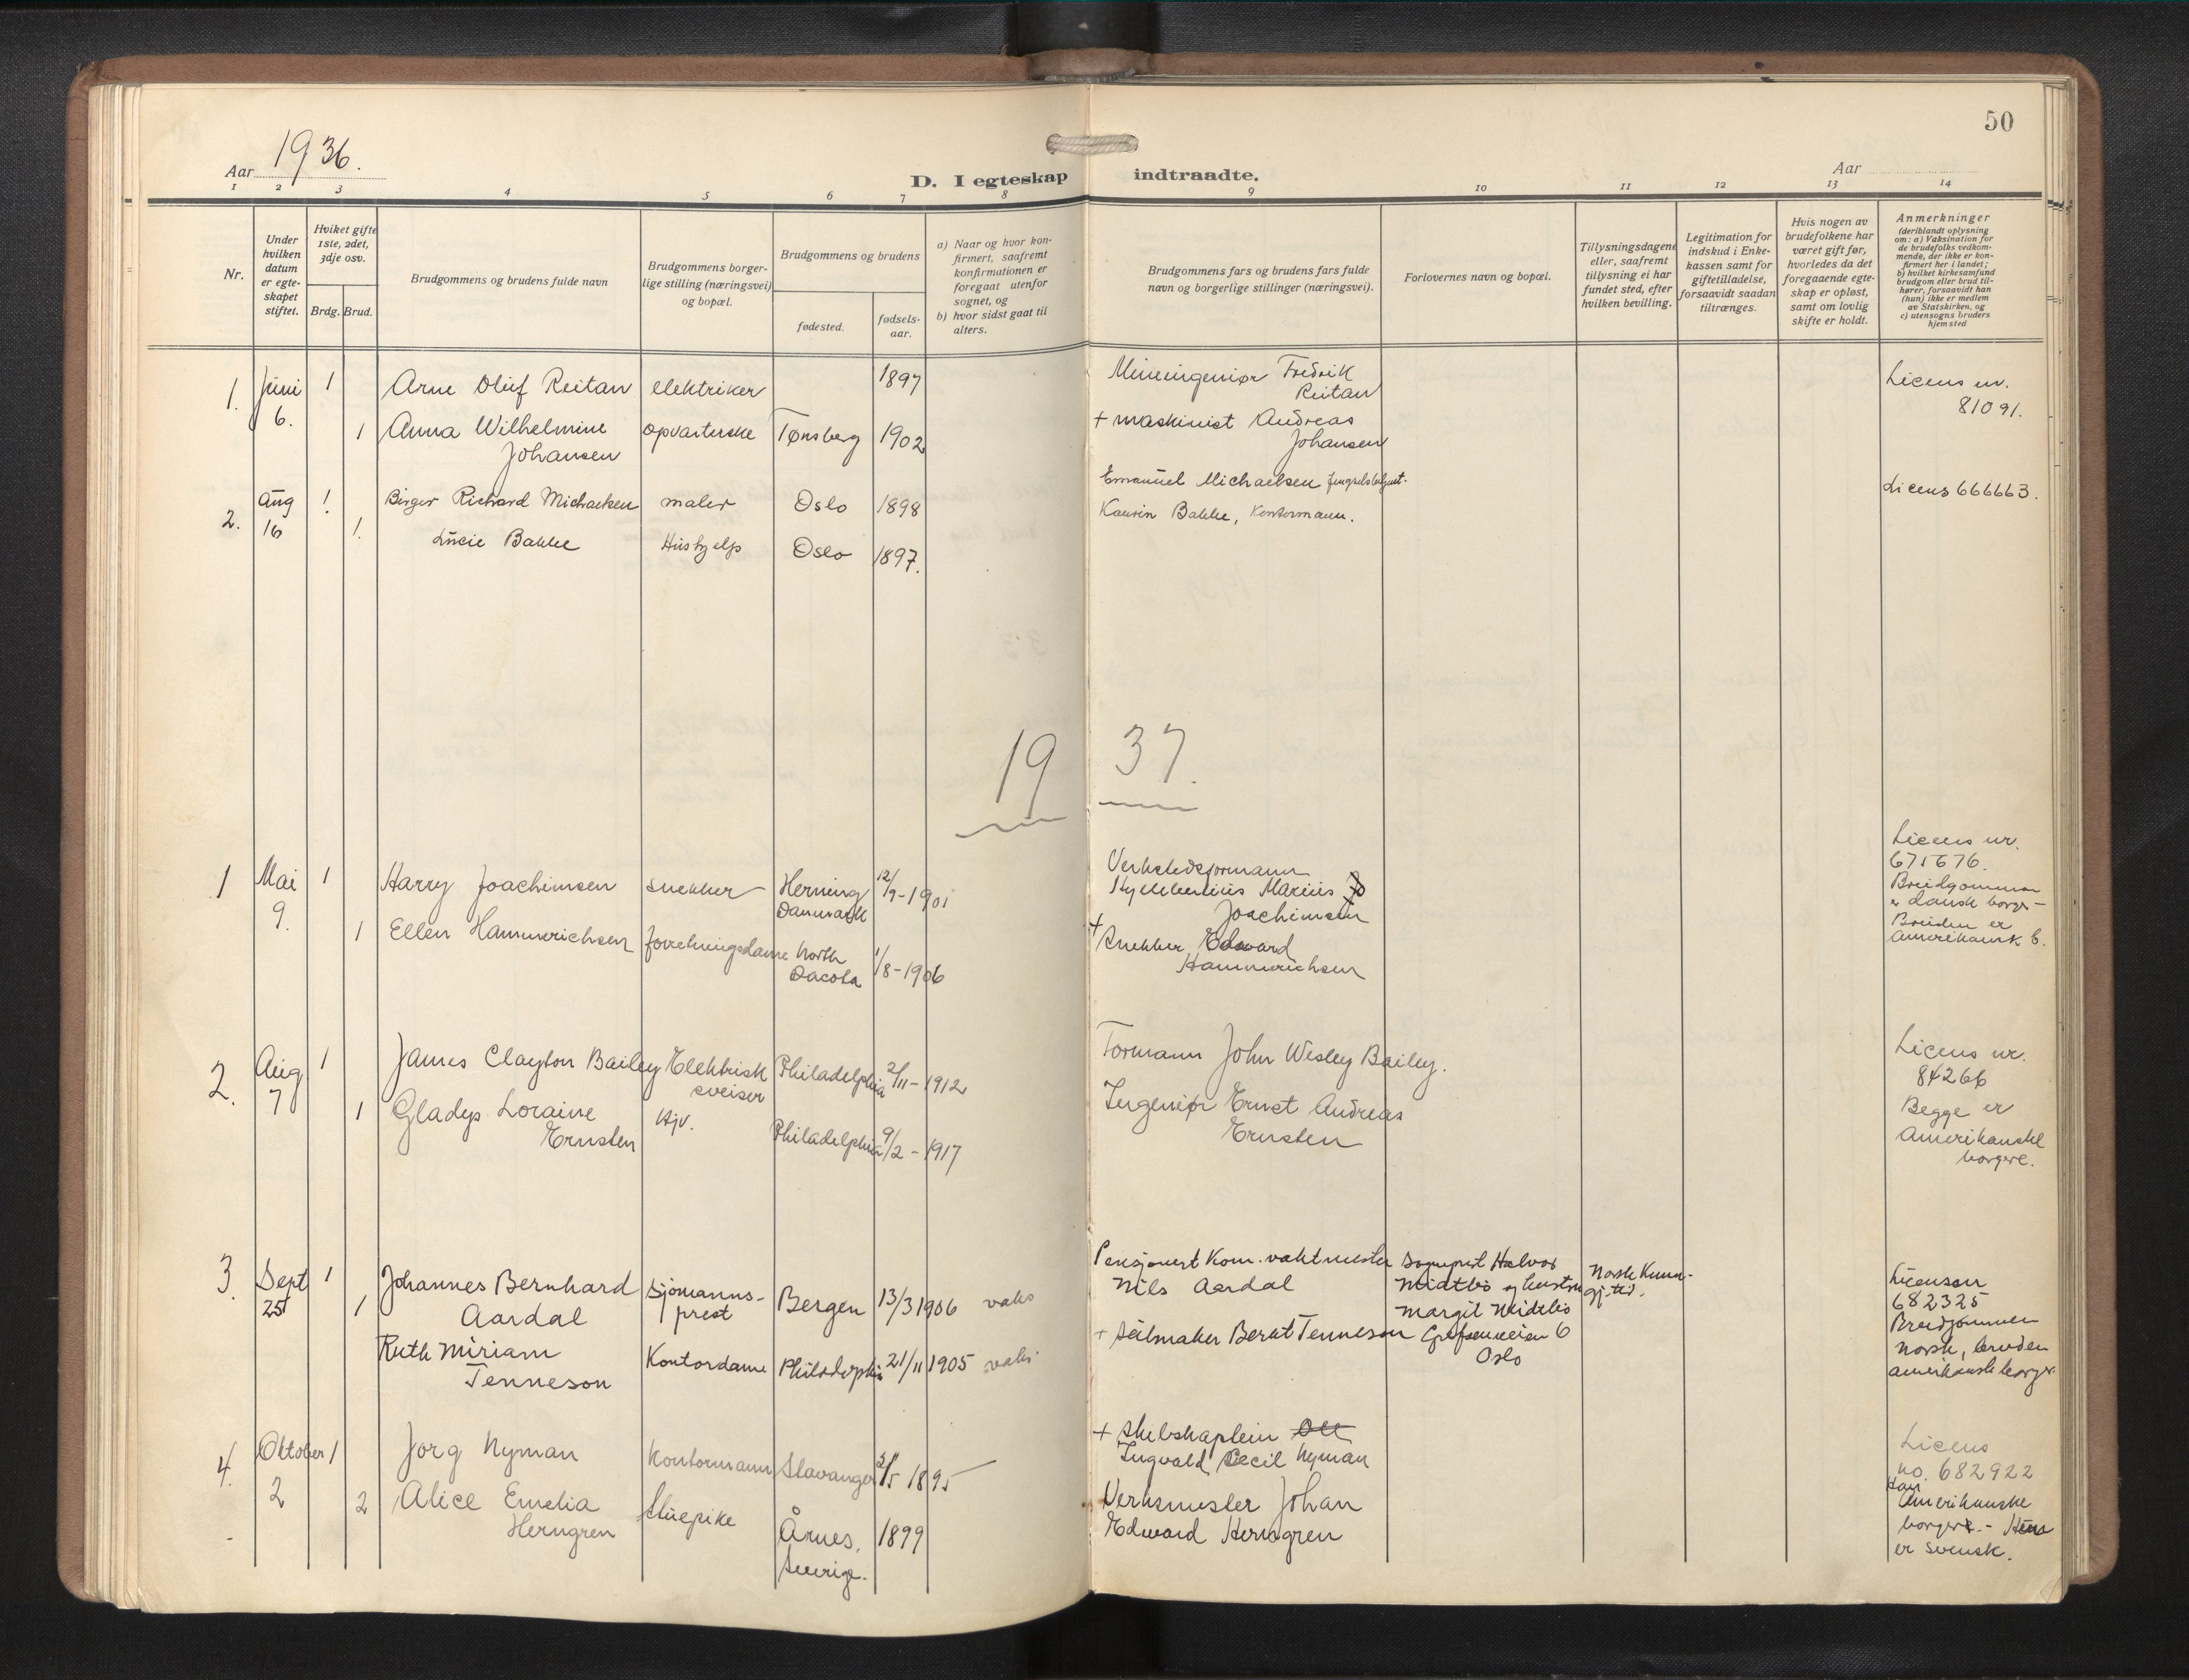 50
Aar 1936.
Aar
D. I egteskap indtraadte.
1 2 3 4 5 6 7 8 9 10 11 12 13 14
Nr.
Under
hvilken
datum
er egte-
skapet
stiftet.
Hviket gifte
1ste, 2det,
3dje osv.
Brdg. Brud.
Brudgommens og brudens fulde navn
Brudgommens borger-
lige stilling (næringsvei)
og bopæl.
Brudgommens og brudens
fødested.
fødsels-
aar.
a) Naar og hvor kon-
firmert, saafremt
konfirmationen er
foregaat utenfor
sognet, og
b) hvor sidst gaat til
alters.
Brudgommens fars og brudens fars fulde
navn og borgerlige stillinger (næringsvei).
Forlovernes navn og bopæl.
Tillysningsdagene
eller, saafremt
tillysning ei har
fundet sted, efter
hvilken bevilling.
Legitimation for
indskud i Enke-
kassen samt for
giftetilladelse,
forsaavidt saadan
tiltrænges.
Hvis nogen av
brudefolkene har
været gift før,
hvorledes da det
foregaaende egte-
skap er opløst,
samt om lovlig
skifte er holdt.
Anmerkninger
(deriblandt oplysning
om: a) Vaksination for
de brudefolks vedkom-
mende, der ikke er kon-
firmert her i landet;
b) hvilket kirkesamfund
brudgom eller brud til-
hører, forsaavidt han
(hun) ikke er medlem
av Statskirken, og
c) utensogns bruders
hjemsted
1. Juni
6.
1
Arne Oluf Reitan
elektriker
1897
Mineingeniør Fredrik
Reitan
Licens nr.
81091.
1
Anna Wilhelmine
Johansen
opvarterske
Tønsberg
1902
+ maskinist Andreas
Johansen
2. Aug
16
1
Birger Richard Michaelsen
maler
Oslo
1898
Emanuel Michaelsen
Licens 666663.
1.
Lucie Bakke
Hushjelp
Oslo
1897.
Bakke, Kontormann.
1937.
1 Mai
9.
1
Harry Joachimsen
snekker
Herning
Danmark
12/9-1901
Verkstedsformann
Marius
Joachimsen
Licens nr.
671676.
Brudgommen
er dansk borger-
Bruden er
Amerikansk b.
1
Ellen Hammerichsen
forretningsdame
North
Dacota
1/8-1906
+
Snekker Edward
Hammerichsen
2. Aug
7
1
James Clayton Bailey
Elektrisk
sveiser
Philadelphia
2/11-1912
Formann John Wesley Bailey.
Licens nr.
84266
Begge er
Amerikanske
borgere.
1
Gladys Loraine
Ernsten
Hjv.
Philadelphia
9/2-1917
Ingeniør Ernst Andreas
Ernsten
3. Sept
25
1
Johannes Bernhard
Aardal
Sjømanns-
prest
Bergen
13/3 1906
vaks
Pensjonert Kom. vaktmester
Nils Aardal
Sogneprest Halvor
Midtbø og hustru
Margit Midtbø
Grefsenveien 6
Oslo
Norsk Kunn-
gj. tid.
Licensen
682325
Brudgommen
norsk, bruden
amerikansk borger.
1
Ruth Miriam
Tenneson
Kontordame
Philadelphia
21/11 1905
vaks.
+ Seilmaker Bernt Tenneson
4. Oktober
2
1
Jorg Nyman
Kontormann
Stavanger
1895
+ Skibskaptein
Ingvald Cecil Nyman
Licens
no. 682922
Han
Amerikanske
borger. - Hun
er svensk.
2
Alice Emelia
Herngren
Stuepike
Årnes,
Sverige.
1899
Verksmester Johan
Edward Herngren